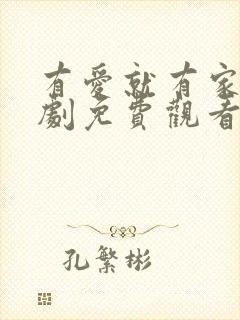 有愛就有家
劇免費觀看
孔繁彬